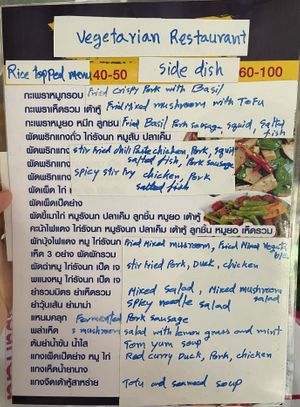 Vegetarian Restaurant
Rice topped menu 40-50 side dish 60-100
กะเพราหมูกรอบ Fried crispy Pork with Basil
กะเพราเห็ดรวม เต้าหู้ Fried Mixed mushroom with Tofu
กะเพราหมูยอ หมึก ลูกชิ้น Fried Basil Pork sausage, squid, salted fish
ผัดพริกแกงถั่ว ไก่รังนก หมูสับ ปลาเค็ม
ผัดพริกแกง stir Fried chili Paste chicken, Pork, squid
salted fish, Pork sausage
ผัดพริก spicy stir fry chicken, Pork
ผัดเผ็ด ไก่ salted fish
ผัดเผ็ดเป็ดย่าง
ผัดขี้เมาไก่ หมูรังนก ปลาเค็ม ลูกชิ้น หมูยอ เต้าหู้
คะน้าไฟแดง ไก่รังนก หมูรังนก ปลาเค็ม เต้าหู้ ลูกชิ้น หมูยอ เห็ดรวม
ผักบุ้งไฟแดง หมู ไก่รังนก Fried Mixed musroom, Fried Mixed Vegeta
ble
เห็ด 3 อย่าง ผัดพักรวม
ผัดฉ่าหมู ไก่รังนก เป็ด stir fried Pork, Duck, chicken
พะแนงหมู ไก่รังนก เป็ด
ยำรวมมิตร ยำเห็ดรวม Mixed salad, Mixed mushroom
salad
ยำวุ้นเส้น ยำมาม่า spicy noodle salad
แหนมคลุก Fermented Pork sausage
พล่าเห็ด mushroom salad with lemon grass and mint
ต้มยำน้ำข้น น้ำใส Tom yum soup
แกงเผ็ดเป็ดย่าง หมู ไก่ Red curry Duck, Pork, chicken
แกงเห็ดน้ำยานาง
แกงจืดเต้าหู้สาหร่าย Tofu and seaweed soup